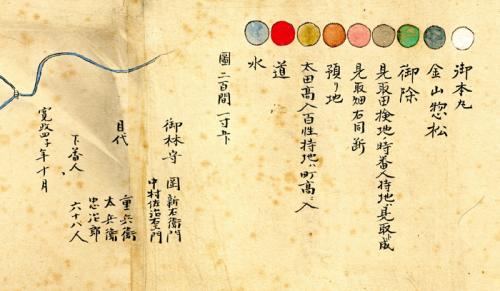 御本丸
金山惣松
御除
見取田検地ノ時番人持地ハ見取成
見取畑右同断
預り地
太田高入百性持地ハ町高ニ入
道
水
圖二百間一寸
御林守 岡新右衛門
中村佐治右衛門
目代 重兵衛
太兵衛
忠治郎
下番人 六十八人
寛政四子年十月